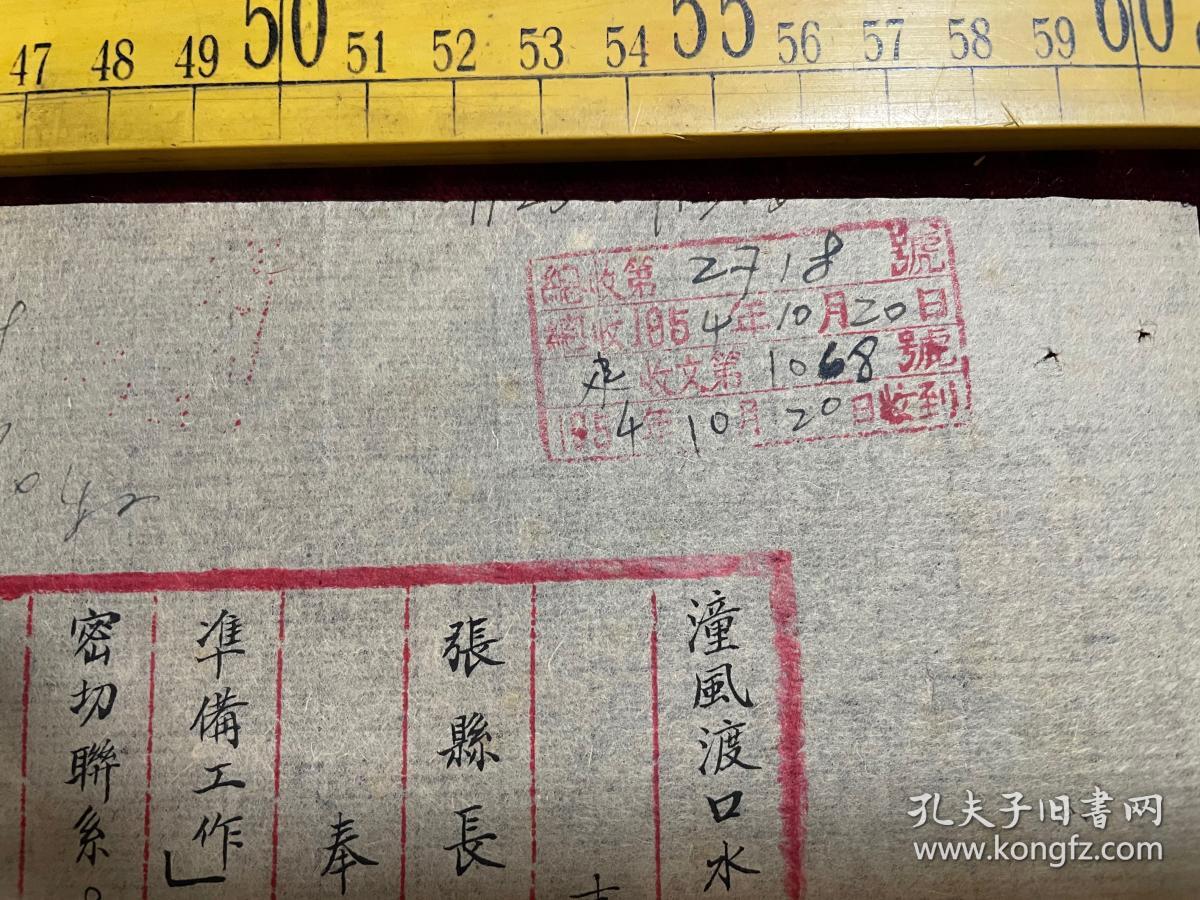 47 48 49 50 51 52 53 54 55 56 57 58 59 60
總收第2718號
總收1954年10月20日
建收文第1068號
1954年10月20日收到
潼風渡口水
張縣長
奉
準備工作」
密切聯系。
孔夫子旧書网
www.kongfz.com